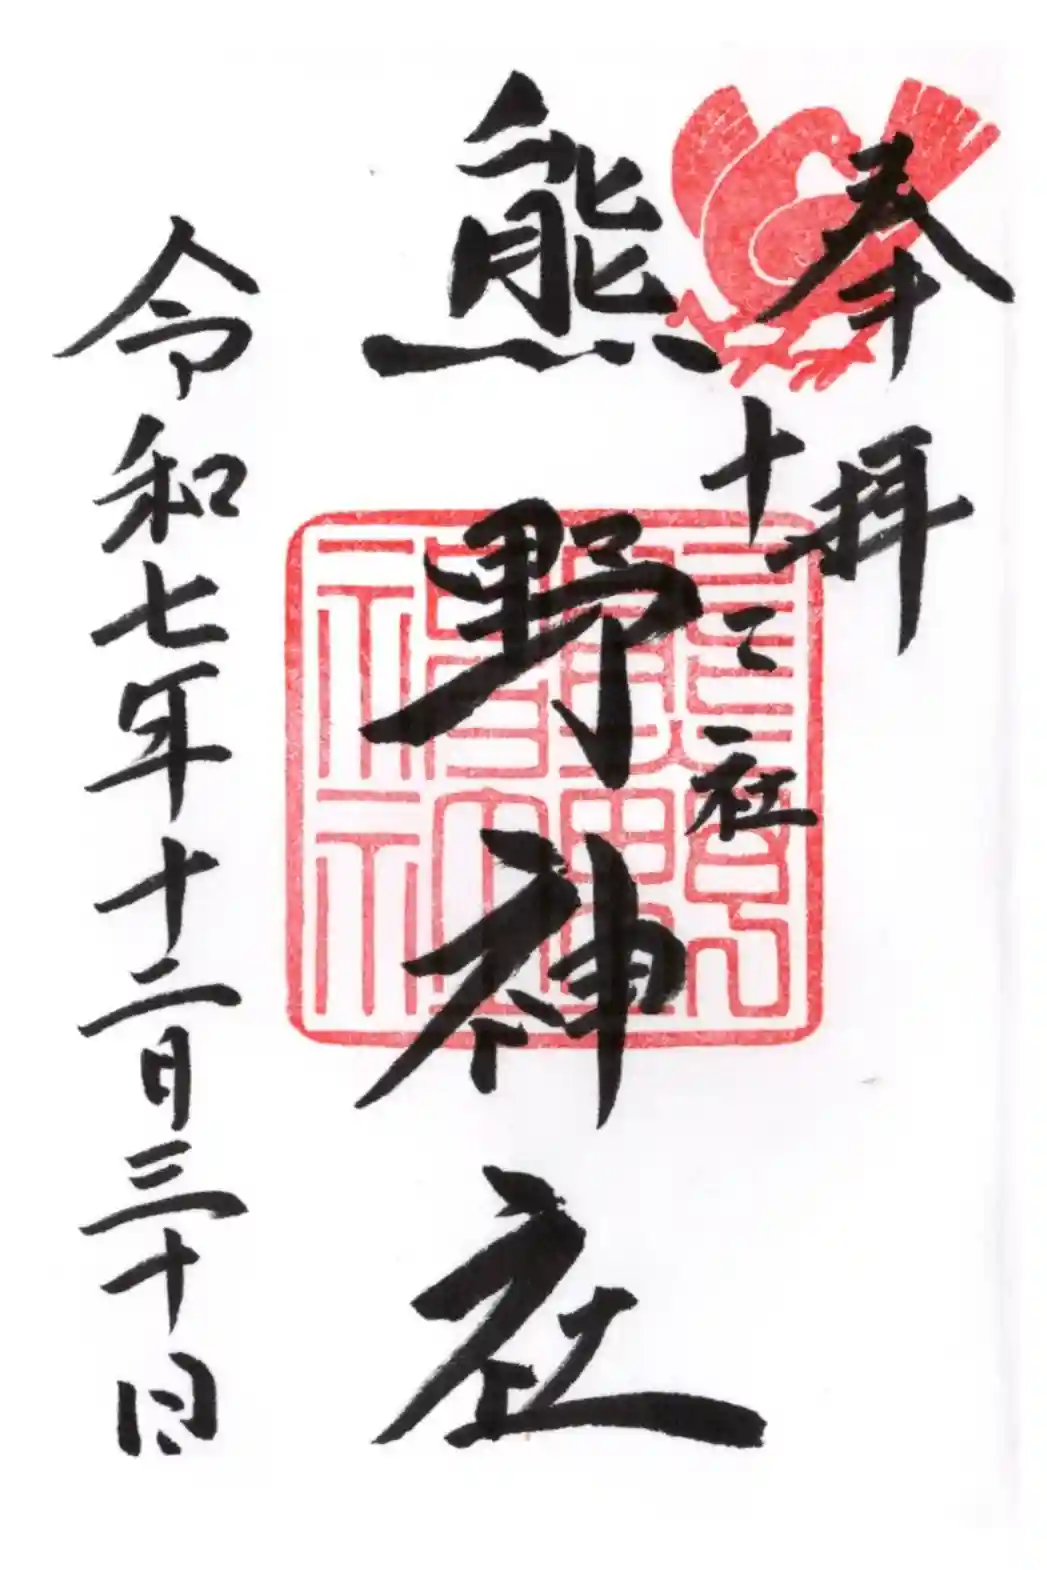 奉拝
十二社
熊野神社
令和七年十二月三十日